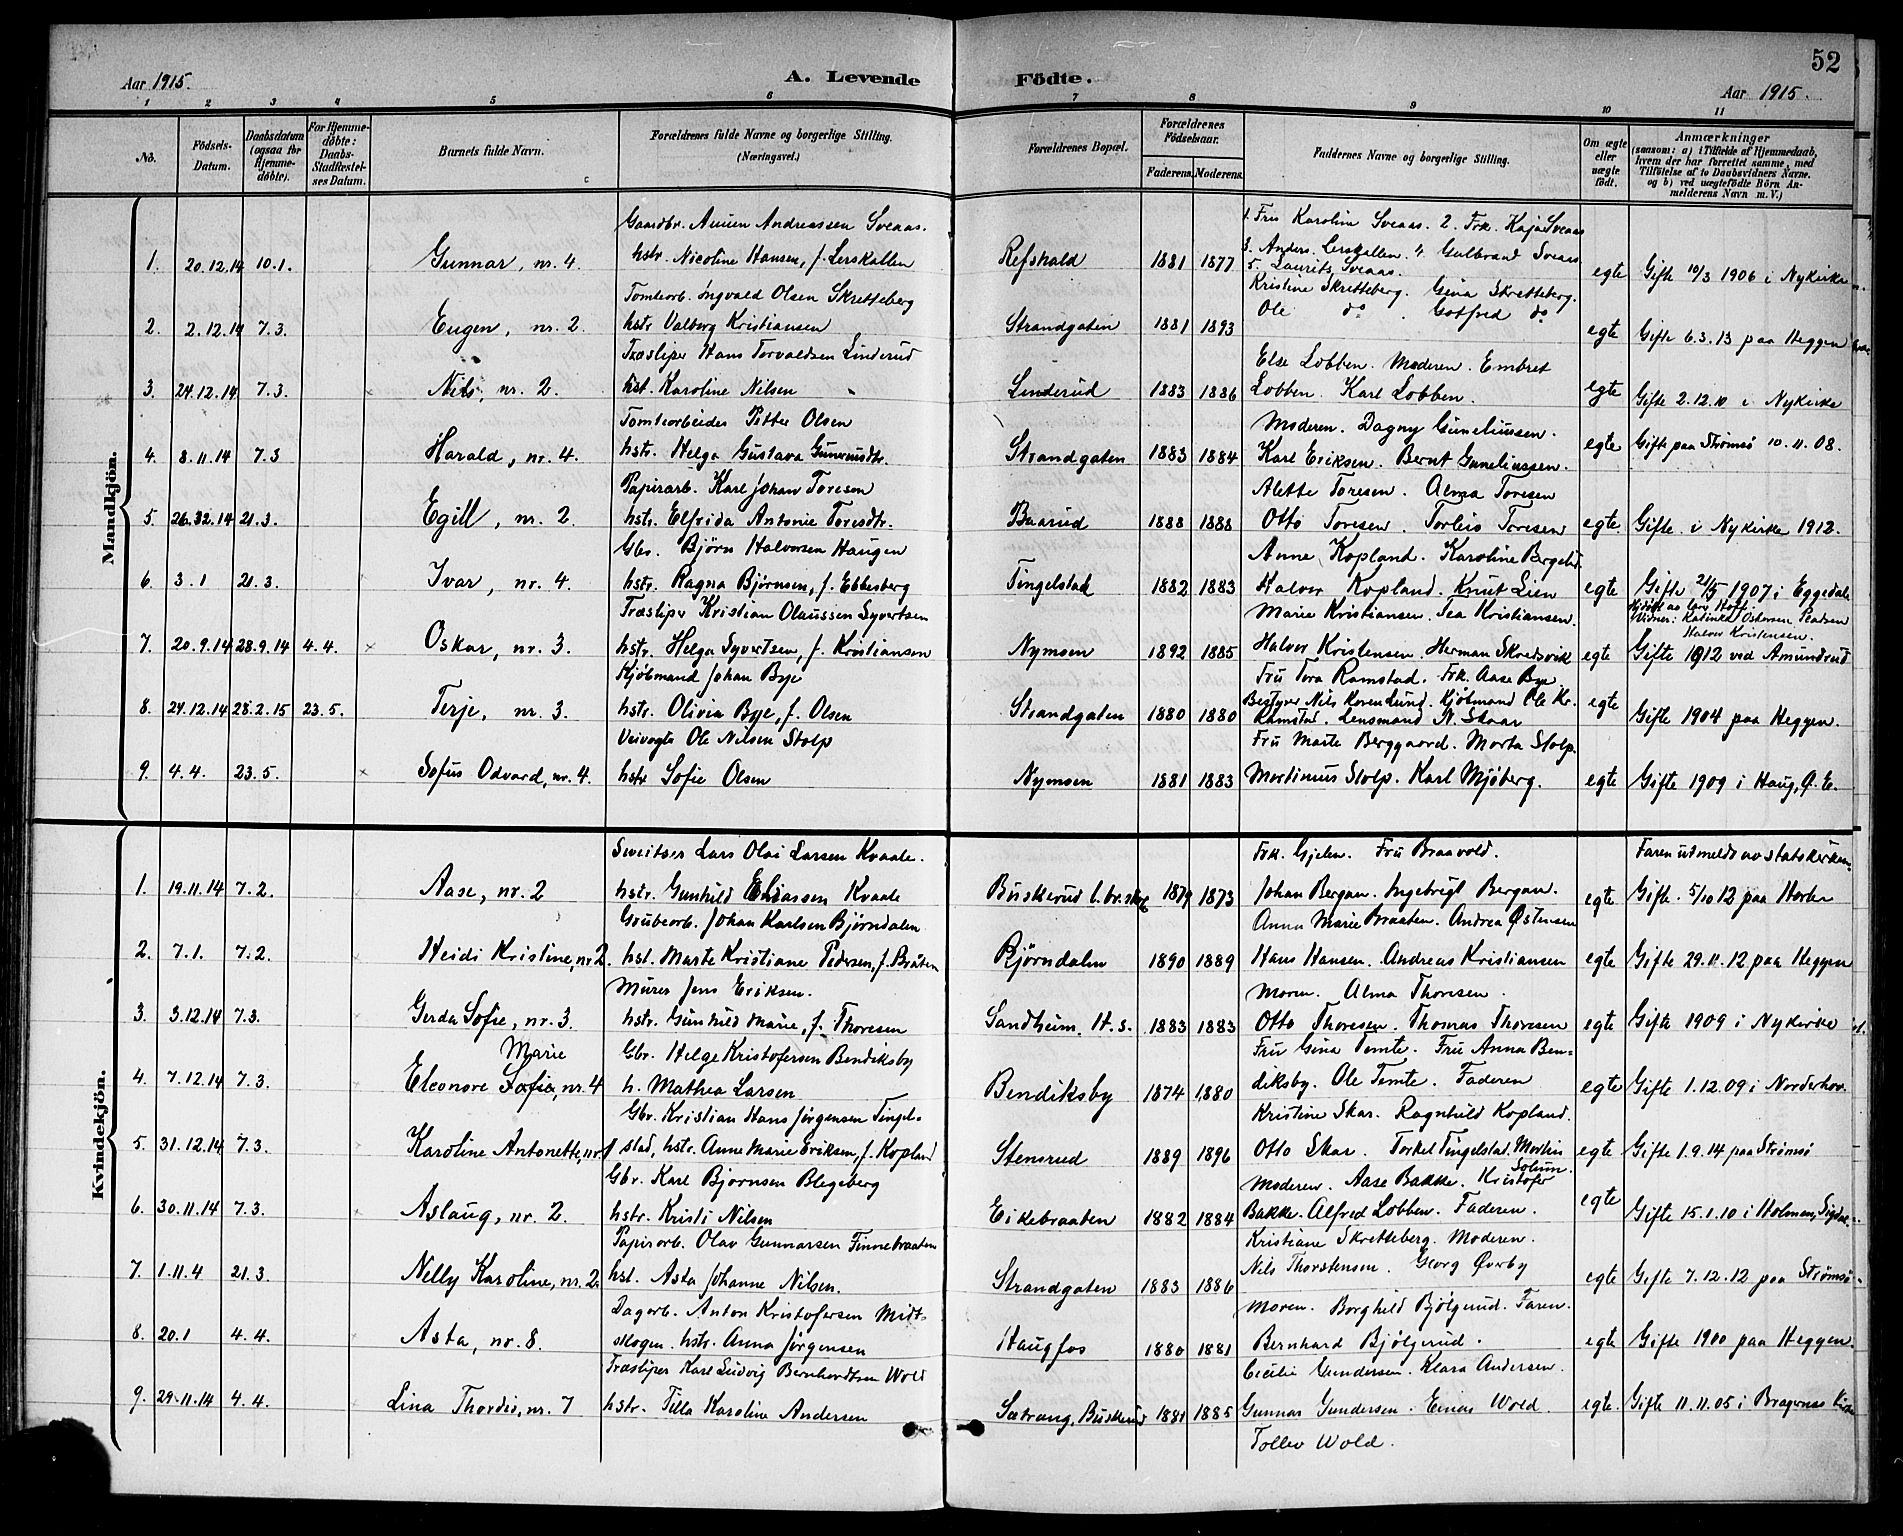 52
Aar 1915.
A. Levende Födte.
Aar 1915.
1 2 3 4 5 6 7 8 9 10 11
No.
Födsels-Datum.
Daabsdatum (ogsaa for Hjemme-döbte).
For Hjemme-döbte: Daabs-Stadfæstel-ses Datum.
Barnets fulde Navn.
Forældrenes fulde Navne og borgerlige Stilling. (Næringsvei.)
Forældrenes Bopæl.
Forældrenes Födselsaar.
Faderens. Moderens.
Faddernes Navne og borgerlige Stilling.
Om ægte eller uægte födt.
Anmærkninger
(saasom: a) i Tilfælde af Hjemmedaab, hvem der har forrettet samme, med Tilföielse af to Daabsvidners Navne. og b) ved uægtefödte Börn An-melderens Navn m. V.)
Mandkjön.
Gaardbr. Anuen Andreassen Sveaas. 1. Fru Karoline Sveaas. 2. Frk. Kaja Sveaas
1. 20.12.14 10.1. Gunnar, nr. 4. hstr. Nicoline Hansen, f. Lerskallen Refshald 1881 1877 3. Anders Lerskallen. 4 Gulbrand Sveaas 5. Laurits Sveaas. egte Gifte 10/3 1906 i Nykirke
Tomteorb. Ingvald Olsen Skretteberg Kristine Skretteberg. Gina Skretteberg.
2. 2.12.14 7.3. Eugen, nr. 2. hstr Valborg Kristiansen Strandgaten 1881 1893 Ole do. Gotfred do egte Gifte 6.3.13 paa Heggen
Træsliper Hans Torvaldsen Linderud Else Lobben. Moderen. Embret
3. 24.12.14 7.3. Nils, nr. 2. hst. Karoline Nilsen Linderud 1883 1886 Lobben. Karl Lobben. egte Gifte 2.12.10 i Nykirke
Tomteorbeider Petter Olsen Moderen. Dagny Guneliussen.
4. 8.11.14 7.3 Harald, nr. 4. hstr. Helga Gustava Strandgaten 1883 1884 Karl Eriksen. Bernt Guneliussen. egte Gifte paa Strømsø 10.11.08.
Papirarb. Karl Johan Toresen Alette Toresen. Alma Toresen
5. 26.32.14 21.3. Egill, nr. 2. hstr. Elfrida Antonie Toresdtr. Baarud 1888 1888 Otto Toresen. Torleis Toresen egte. Gifte i Nykirke 1912.
Gbr. Bjørn Halvorsen Haugen Anne Kopland. Karoline
6. 3.1 21.3. Ivar, nr. 4. hstr. Ragna Bjørnsen, f. Ebbesberg Tingelstad 1882 1883 Halvor Kopland. Knut Lien egte Gifte 21/5 1907 i Eggedale
Træsliper Kristian Olaussen Syvertsen Marie Kristiansen. Tea Kristiansen. Vidner: Katinka Halvor Kristensen.
7. 20.9.14 28.9.14 4.4. Oskar, nr. 3. hstr. Helga Syvertsen, f. Kristiansen Nymoen 1892 1885 Halvor Kristensen. Herman Skredsvik egte Gifte 1912 ved Amundrud
Kjøbmand Johan Bye Fru Tora Ramstad. Frk. Aase Bye
8. 24.12.14 28.2.15 23.5. Terje, nr. 3. hstr. Olivia Bye, f. Olsen Strandgaten 1880 1880 Bestyrer Nils Korenlund. Kjøbmand Ole Kr. Ramstad. Lensmand N. Skaar egte Gifte 1904 paa Heggen.
Veivogter Ole Nilsen Stolp Fru Marte Berggaard. Marta Stolp.
9. 4.4. 23.5. Sofus Odvard, nr. 4. hstr Sofie Olsen Nymoen 1881 1883 Martinius Stolp. Karl Mjøberg. egte Gifte 1909 i Haug, Ø. E.
Kvindekjön.
Sveitser Lars Olai Larsen Kvaale. Frk. Gjelen. Fru Braavold. Faren utmeldt av statskirken
1. 19.11.14 7.2. Aase, nr. 2 hstr. Gunhild Eliassen Kvaale Buskerud 1879 1873 Johan Bergan. Ingebrigt Bergan. egte Gifte 5/10 12 paa Horten
Grubeorb. Johan Karlsen Bjørndalen Anna Marie Braaten. Andrea Østensen
2. 7.1. 7.2. Heidi Kristine, nr 2. hst. Marte Kristiane Pedersen, f. Bråten Bjørndalen 1890 1889 Hans Hansen. Andreas Kristiansen egte Gifte 29.11.12 paa Heggen
Murer Jens Eriksen. Moren. Alma Thoresen.
3. 3.12.14 7.3. Gerda Sofie, nr. 3. hstr. Gunhild Marie, f. Thoresen Sandheim, H. s. 1883 1883 Otto Thoresen. Thomas Thoresen egte Gifte 1909 i Nykirke
Marie Gbr. Helge Kristofersen Bendiksby Fru Gina Temte. Fru Anna Ben=
4. 7.12.14 7.3. Eleonore Sofie, nr. 4 h. Mathea Larsen Bendiksby 1874 1880 diksby. Ole Temte. Faderen egte Gifte 1.12.09 i Norderhov.
Gbr. Kristian Hans Jørgensen Tingel= Kristine Skar. Ragnhild Kopland.
5. 31.12.14 7.3. Karoline Antonette, nr. 1 stad, hstr. Anne Marie Eriksen, f. Kopland Stensrud 1889 1896 Otto Skar. Torkel Tingelstad. Martin Solum. egte Gifte 1.9.14 paa Strømsø
Gbr. Karl Bjørnsen Blegeberg Moderen. Aase Bakke. Kristofer
6. 30.11.14 7.3. Aslaug, nr. 2. hstr. Kristi Nilsen Eikebraaten 1882 1884 Bakke. Alfred Lobben. Faderen. egte Gifte 15.1.10 i Holmen, Sigdal
Papirorb. Olav Gunnarsen Finnebraaten Kristiane Skretteberg. Moderen.
7. 1.11.4 21.3. Nelly Karoline, nr. 2. hst. Asta Johanne Nilsen. Strandgaten 1883 1886 Nils Thorstensen. Georg Øverby egte Gifte 7.12.12 paa Strømsø
Dagorb. Anton Kristofersen Midt= Moren. Borghild Bjølgerud. Faren.
8. 20.1 4.4. Asta, nr. 8. skogen. hstr. Anna Jørgensen Haugfos 1880 1881 Bernhard Bjølgerud. egte Gifte 1900 paa Heggen.
Træsliper Karl Ludvig Bernhardtsen Wold Cecilie Gundersen. Klara Andersen.
9. 29.11.14 4.4. Lina Thordis, nr. 7 hstr. Tilla Karoline Andersen Sætrang, Buskerud 1881 1885 Gunnar Gundersen. Einar Wold. egte. Gifte 11.11.05 i Bragernes Kirke
Tollev Wold.